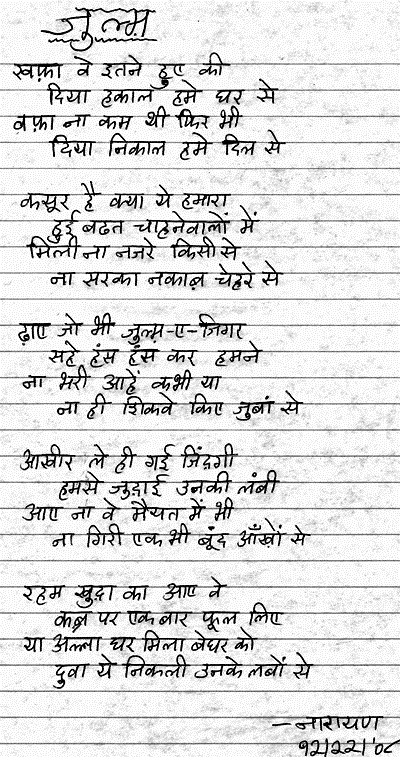 जुल्म
खफ़ा वे इतने हुए की
दिया हकाल हमे घर से
वफ़ा ना कम थी फिर भी
दिया निकाल हमे दिल से
कसूर है क्या ये हमारा
हुई बढत चाहनेवालों में
मिली ना नजरे किसी से
ना सरका नकाब चेहरे से
ढ़ाए जो भी जुल्म-ए-जिगर
सहे हंस हंस कर हमने
ना भरी आहें कभी या
ना ही शिकवे किए जुबां से
आखीर ले ही गई जिंदगी
हमसे जुदाई उनकी लंबी
आए ना वे मैयत में भी
ना गिरी एक भी बूंद आँखों से
रहम खुदा का आए वे
कब्र पर एक बार फूल लिए
या अल्ला घर मिला बेघर को
दुवा ये निकली उनके लबों से
—नारायण